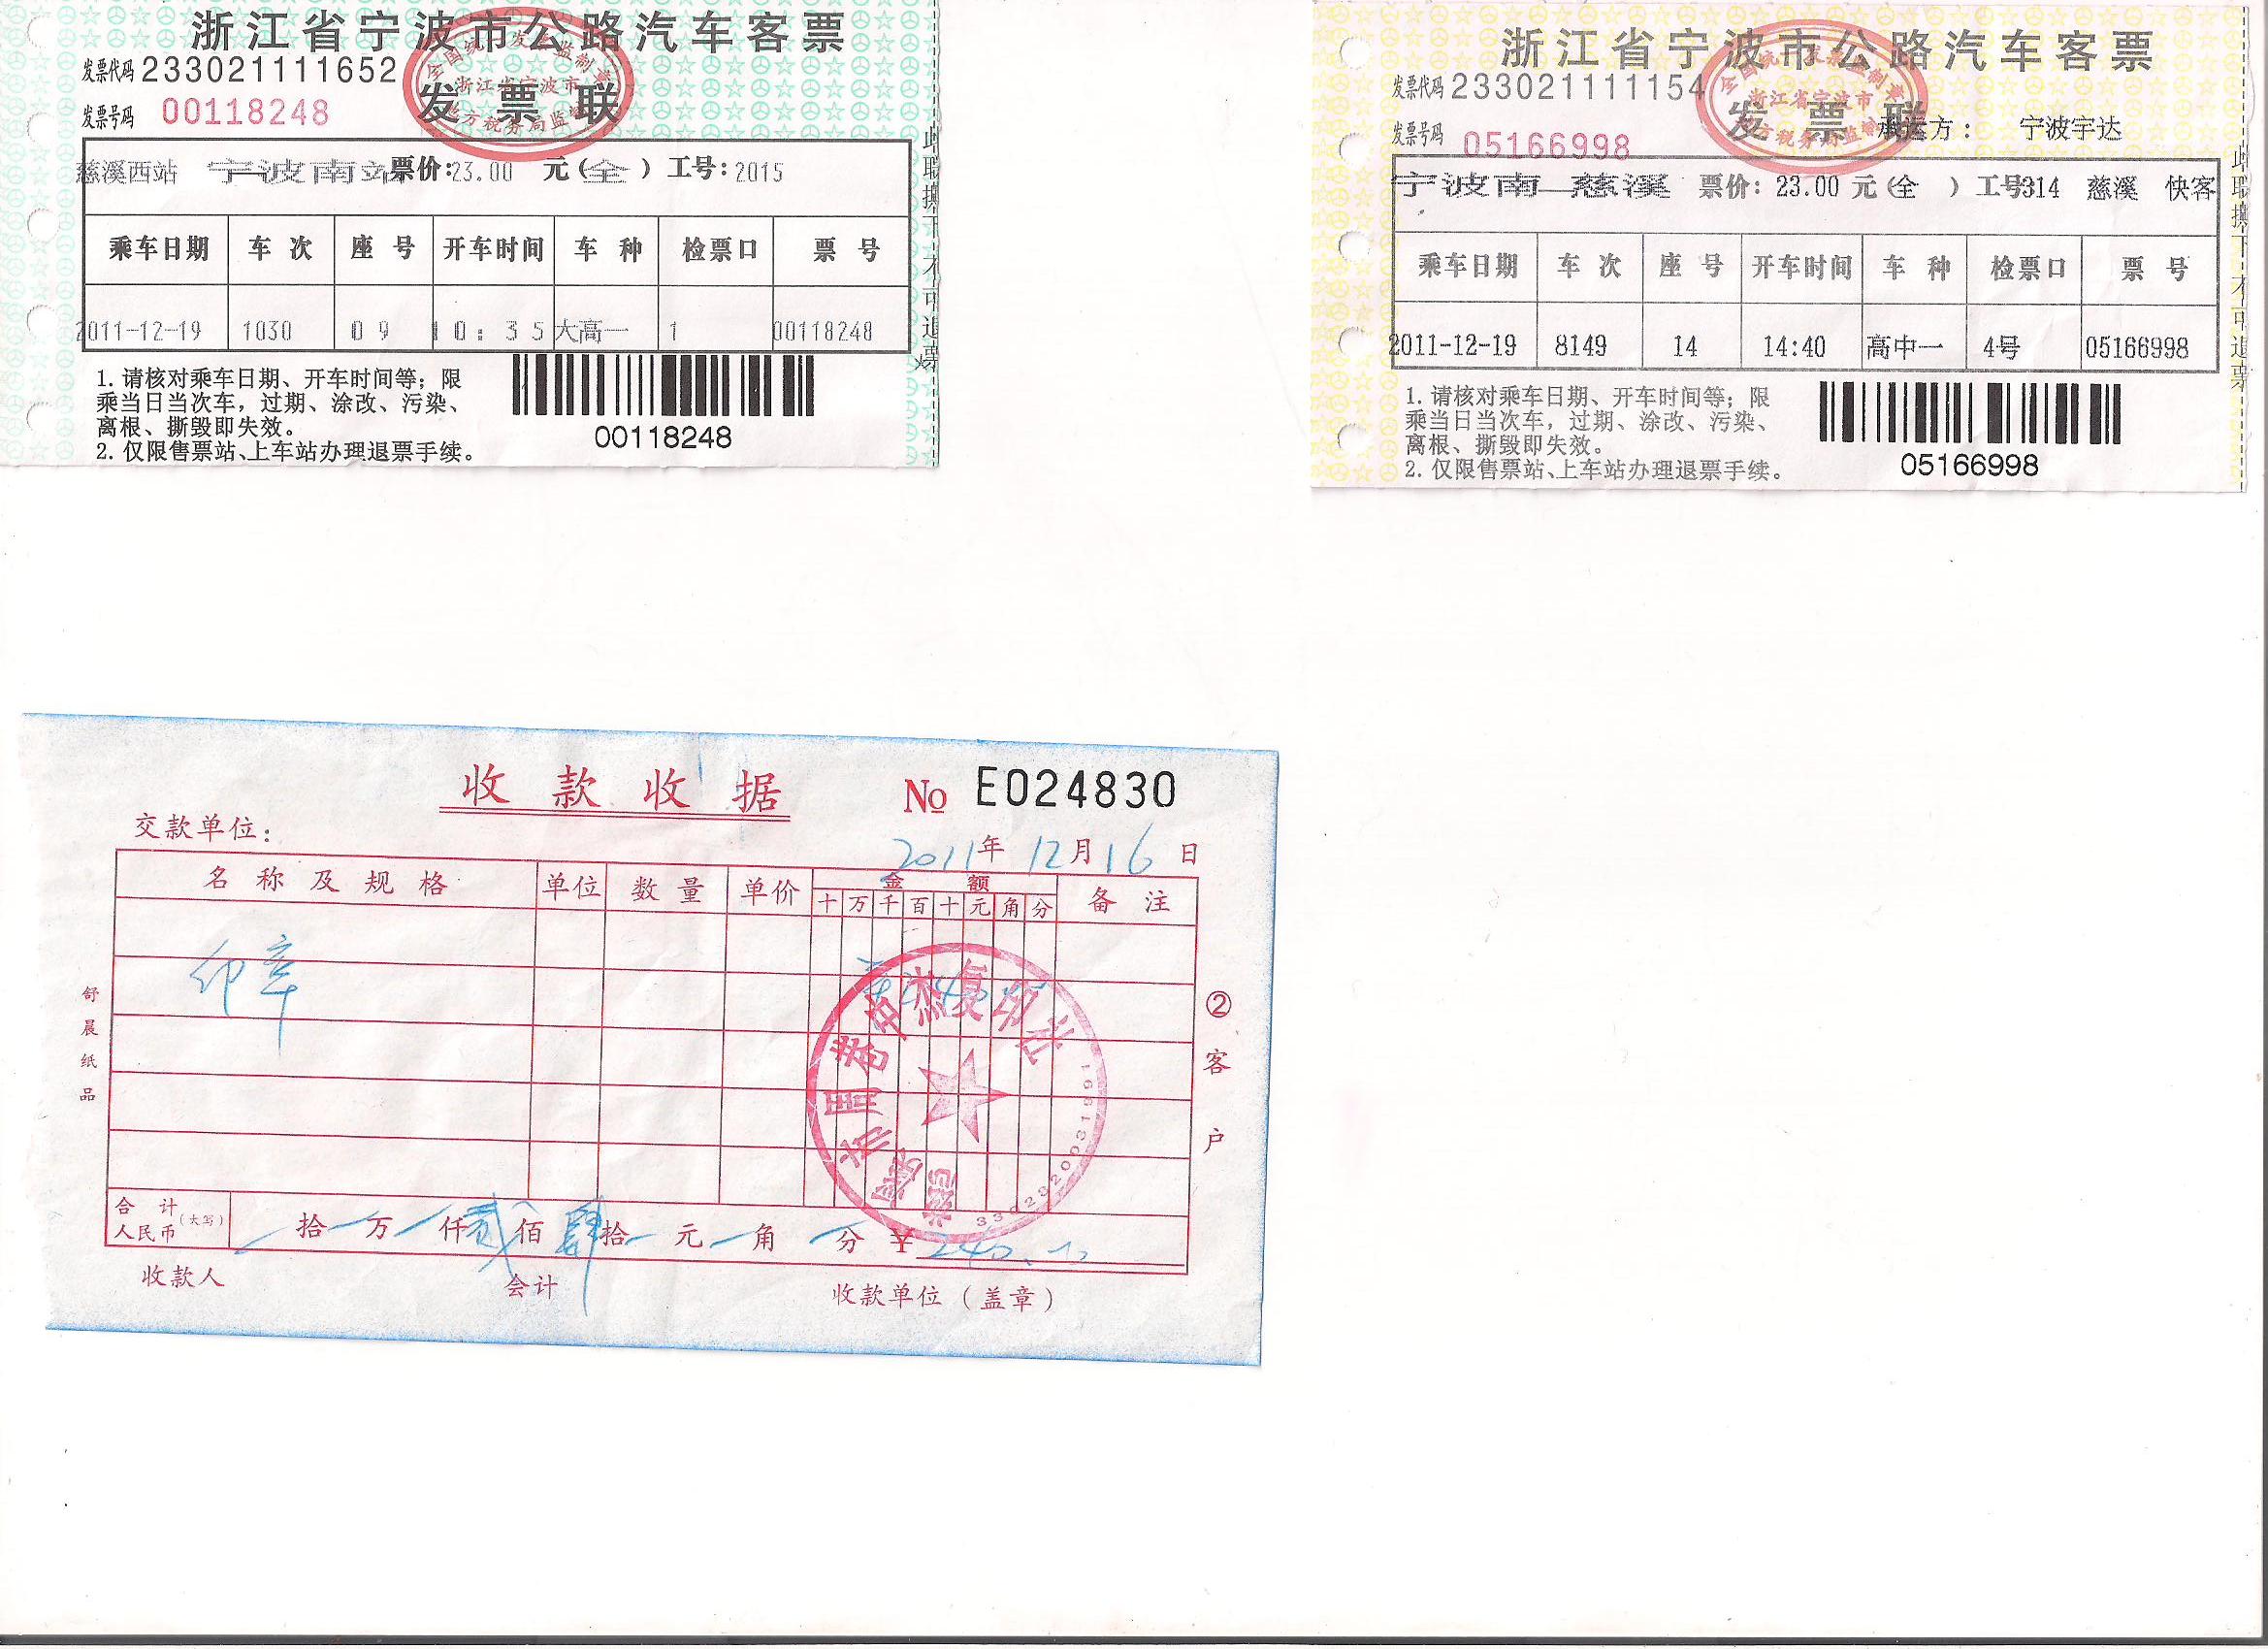 浙江省宁波市公路汽车客票
发票代码 233021111652
发票联
发票号码 00118248
全国统一发票监制章
浙江省宁波市
地方税务局监制
慈溪西站 宁波南站 票价:23.00 元(全 ) 工号:2015
乘车日期 车次 座号 开车时间 车种 检票口 票号
2011-12-19 1030 09 10:35 大高一 1 00118248
1. 请核对乘车日期、开车时间等; 限
乘当日当次车, 过期、涂改、污染、
离根、撕毁即失效。
2. 仅限售票站、上车站办理退票手续。
00118248
此联撕下不可退票
浙江省宁波市公路汽车客票
发票代码 233021111154
发票联
承运方: 宁波宇达
发票号码 05166998
全国统一发票监制章
浙江省宁波市
地方税务局监制
宁波南—慈溪 票价: 23.00 元(全 ) 工号314 慈溪 快客
乘车日期 车次 座号 开车时间 车种 检票口 票号
2011-12-19 8149 14 14:40 高中一 4号 05166998
1. 请核对乘车日期、开车时间等; 限
乘当日当次车, 过期、涂改、污染、
离根、撕毁即失效。
2. 仅限售票站、上车站办理退票手续。
05166998
此联撕下不可退票
收款收据 No E024830
交款单位:
2011年 12月 16日
名称及规格 单位 数量 单价 金额 备注
十 万 千 百 十 元 角 分
印章
合计
人民币(大写) 拾 万 仟 贰佰 肆拾 元 角 分 ¥ 240.00
收款人 会计 收款单位(盖章)
舒晨纸品
②客户
3302820031991